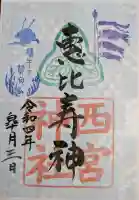 恵比寿神
西宮
神社
令和四年
皐月三日